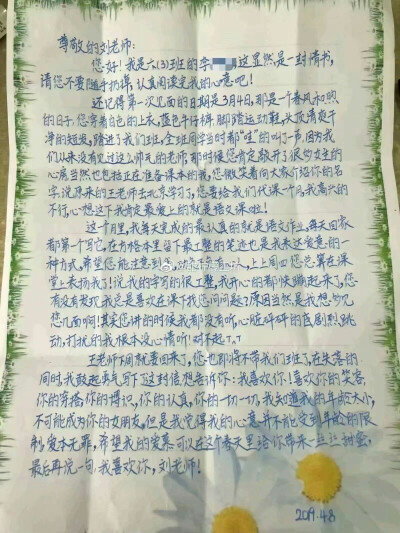 尊敬的刘老师:
您好!我是六(3)班的李 这显然是一封情书,
请您不要随手扔掉,认真阅读完我的心意吧!
还记得第一次见面的日期是3月4日,那是个春风和煦
的日子,您穿着白色的上衣,蓝色牛仔裤,脚踏运动鞋,头顶清爽干
净的短发,踏进了我们班,全班同学当时都“哇”的叫了一声,因为我
们从来没有见过这么帅气的老师,那时候您肯定敲开了很多女生的
心房当然也包括正在准备课本的我,您微笑着向大家介绍你的名
字,说原来的王老师去北京学习了,您要给我们代课一个月,我高兴的
不行,心想这下我肯定最爱上的就是语文课啦!
这个月里,我每天完成的最认真的就是语文作业,每天回家
都第一个写它,在方格本里留下最工整的笔迹也是我表达爱意的一
种方式,希望您能注意到 ,上上周四您说,算在课
堂上表扬我了!说我的字写的很工整,我开心的都快蹦起来了,您
有没有发现我总是喜欢在课下找您问问题?原因当然是我想多见
您几面啊!其实您讲的时候我都没有听,心脏砰砰的在剧烈跳
动,打扰的我根本没心情听!对不起了,
王老师下周就要回来了,您也即将不带我们班了,在失落的
同时,我鼓起勇气写下了这封信想告诉你:我喜欢你!喜欢你的笑容,
你的穿搭,你的博识,你的认真,你的一切一切,我知道我的年龄太小,
不可能成为你的女朋友,但是我觉得我的心意并不能受到年龄的限
制,爱本无罪,希望我的爱慕可以在这个春天里给你带来一丝甜蜜,
最后再说一句,我喜欢你,刘老师!
2019.4.8